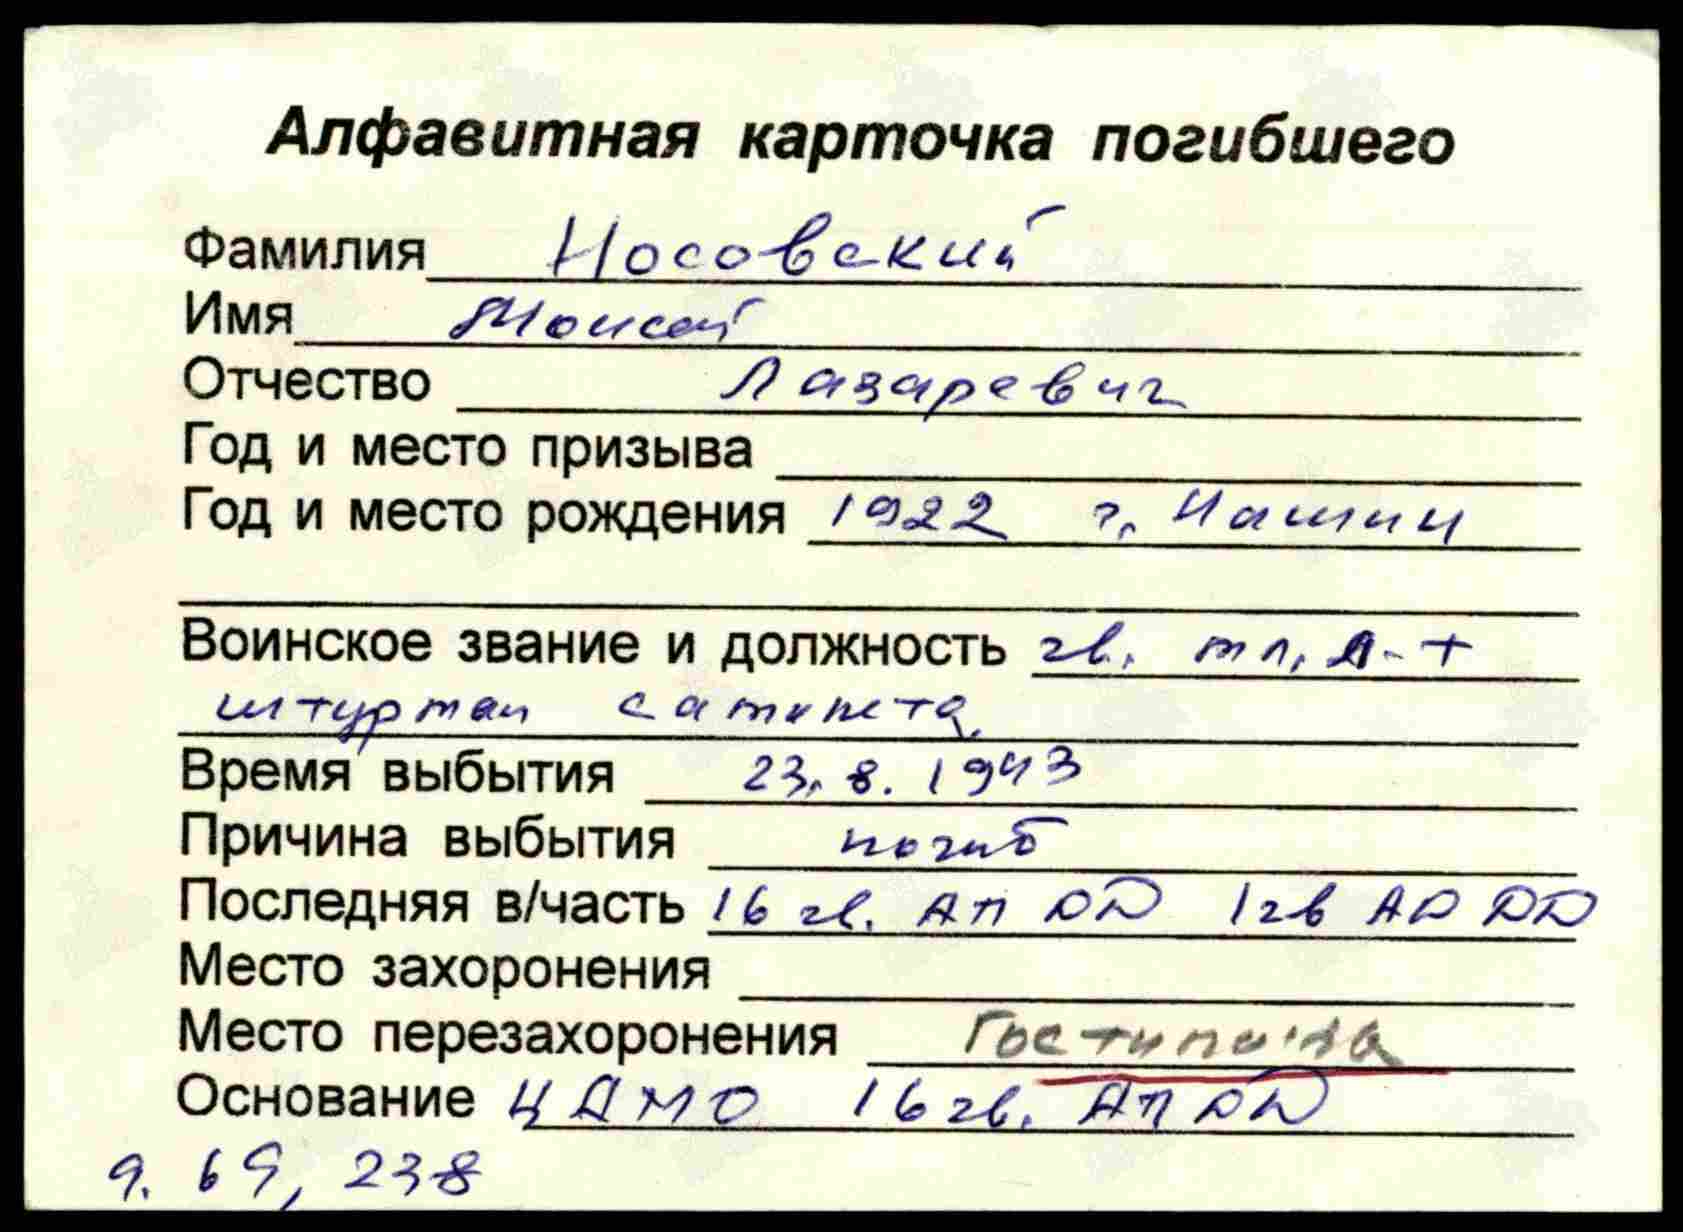 Алфавитная карточка погибшего
Фамилия Носовский
Имя Моисей
Отчество Лазаревич
Год и место призыва
Год и место рождения 1922 г. Нашин
Воинское звание и должность гв. мл. л-т
штурман самолета
Время выбытия 23.8.1943
Причина выбытия погиб
Последняя в/часть 16 гв. АП ДД 1 гв АД ДД
Место захоронения
Место перезахоронения
Основание ЦАМО 16 гв. АП ДД
д. 69, 238